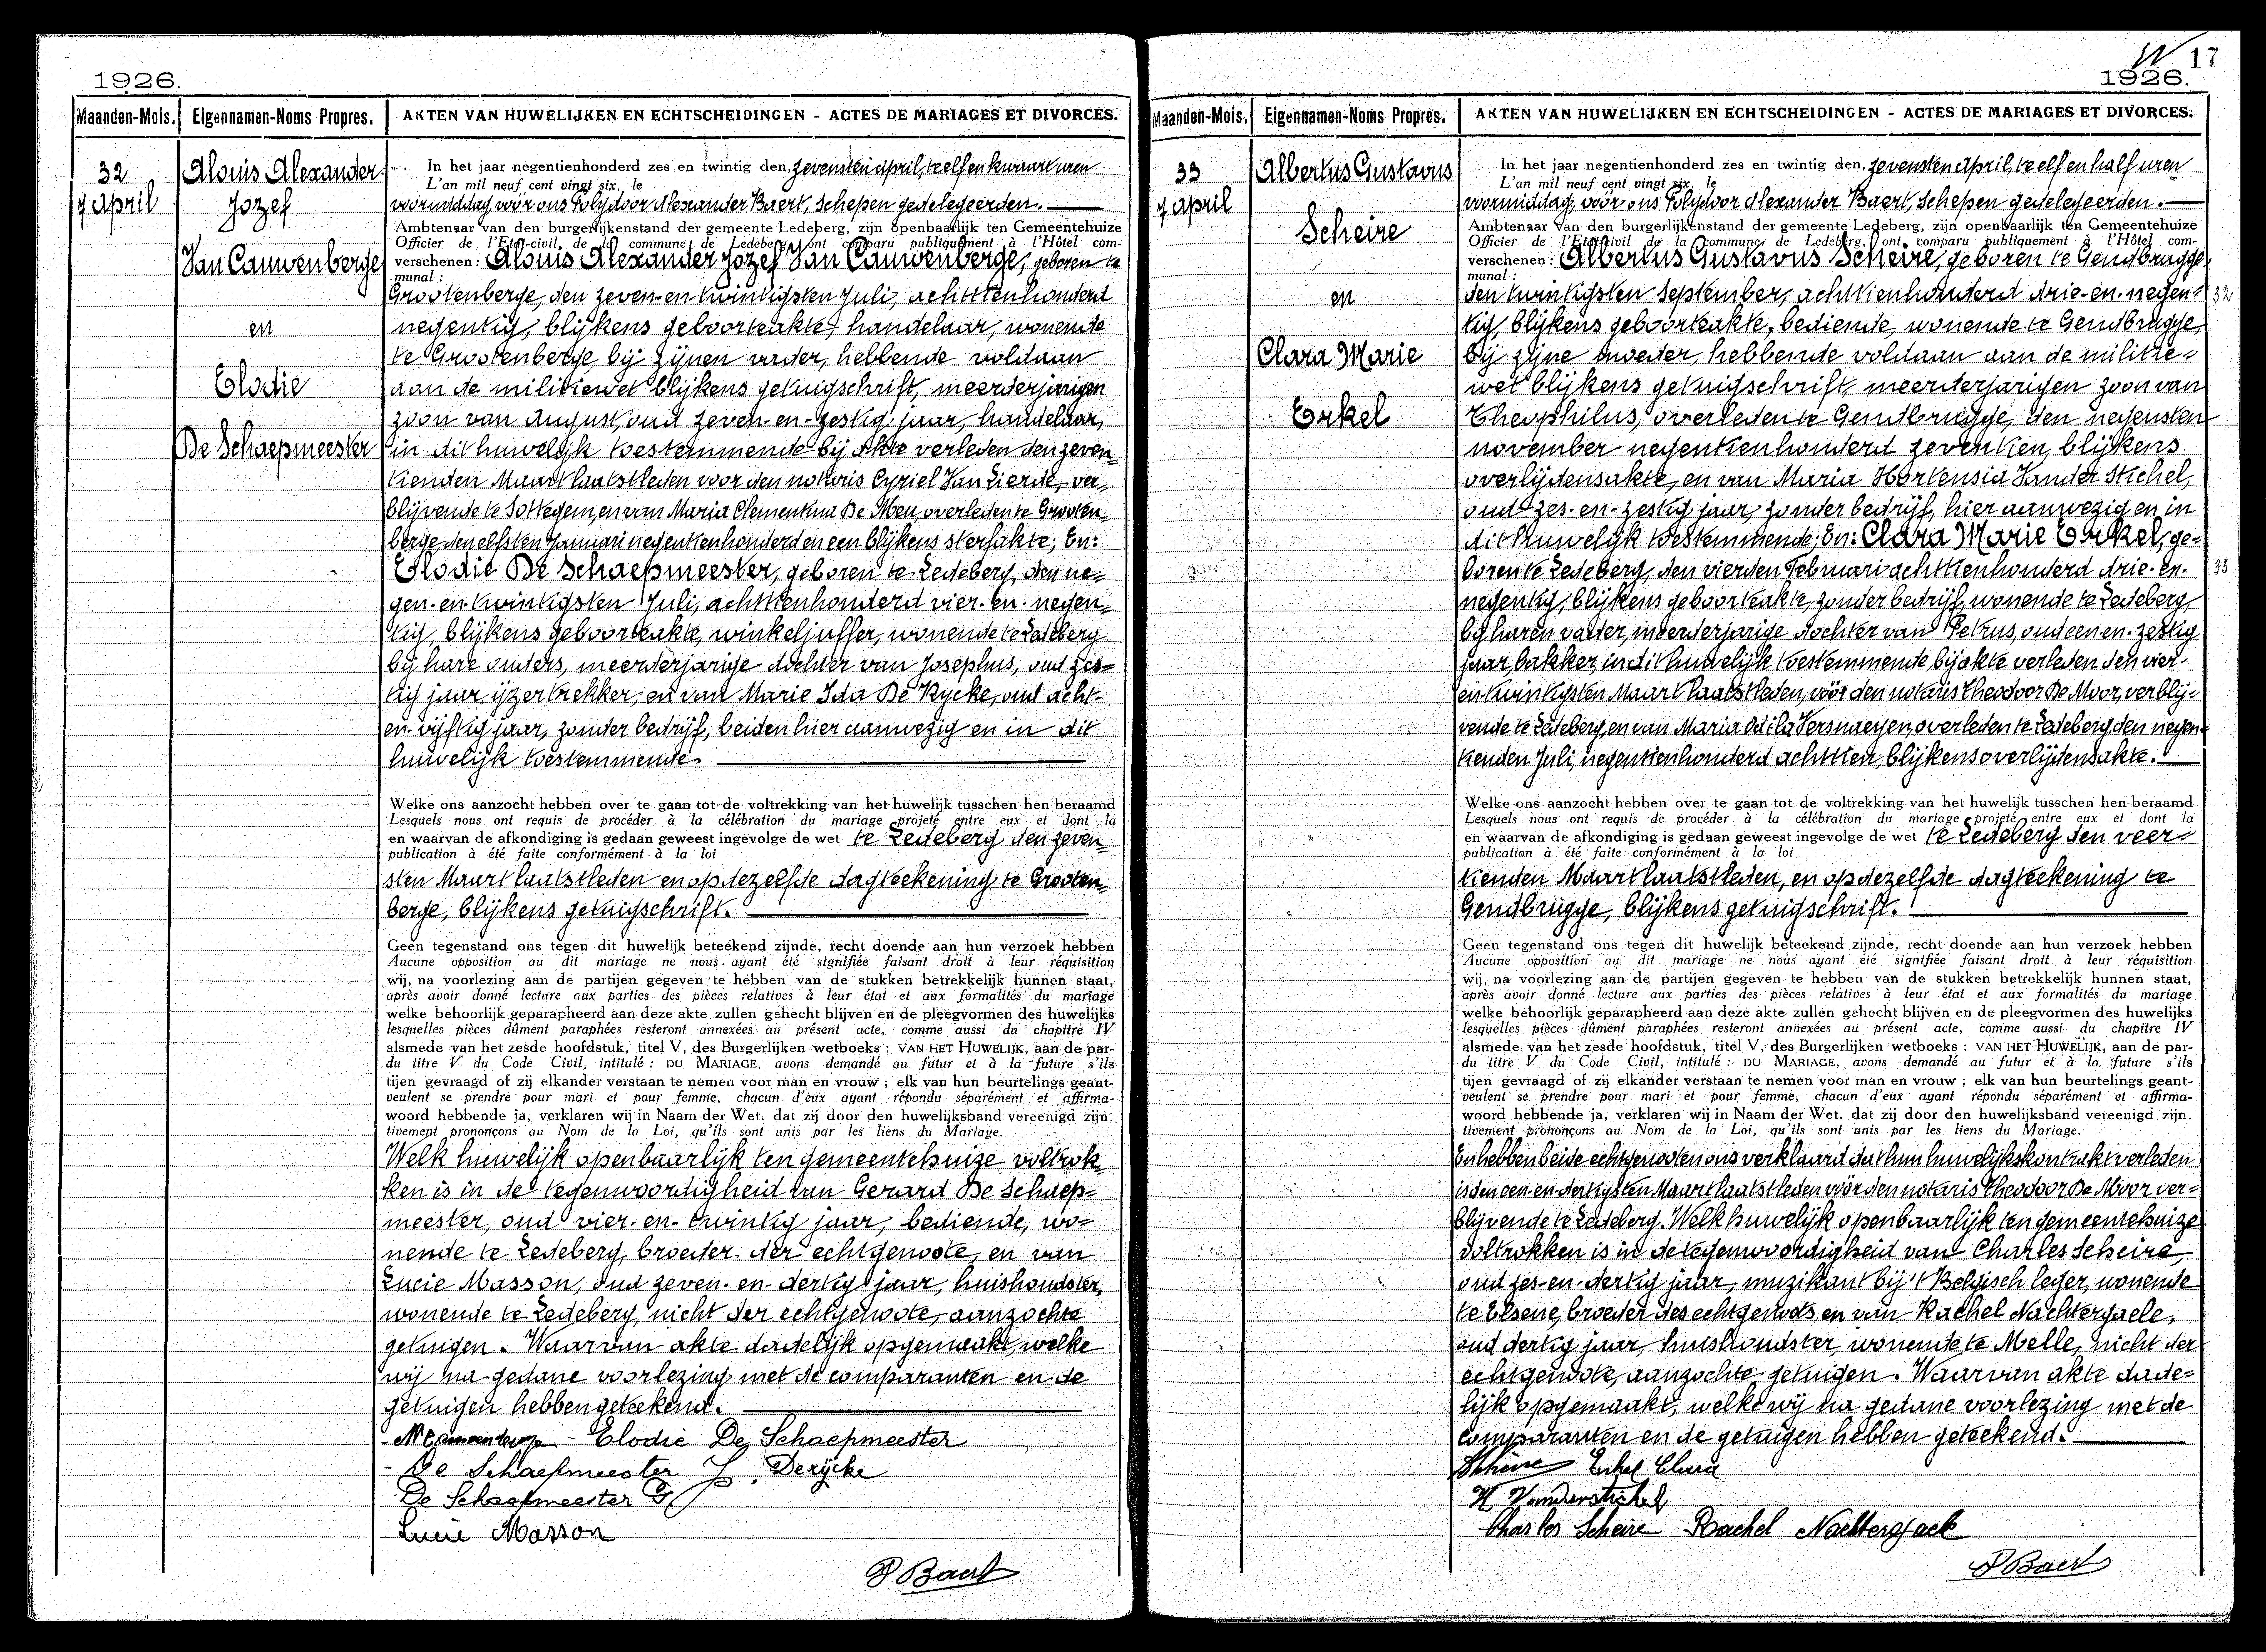 1926.
Maanden-Mois.
Eigennamen-Noms Propres.
AKTEN VAN HUWELIJKEN EN ECHTSCHEIDINGEN - ACTES DE MARIAGES ET DIVORCES.
32
7 April
Aloïs Alexander
Jozef
Van Cauwenberge
en
Elodie
De Schaepmeester
In het jaar negentienhonderd zes en twintig den, zevensten april, te elf en kwaart uren
L'an mil neuf cent vingt six, le
voormiddag, vóór ons Polydoor Alexander Baert, Schepen gedelegeerden.
Ambtenaar van den burgerlijkenstand der gemeente Ledeberg, zijn openbaarlijk ten Gemeentehuize
Officier de l'Etat-civil de la commune de Ledeberg, ont comparu publiquement à l'Hôtel com-
verschenen : Aloïs Alexander Jozef Van Cauwenberge, geboren te
munal :
Grootenberge, den zeven-en-twintigsten Juli, achttienhonderd
negentig, blijkens geboorteakte, handelaar, wonende
te Grootenberge, bij zijnen vader, hebbende voldaan
aan de militiewet blijkens getuigschrift, meerderjarigen
zoon van August, oud zeven-en-zestig jaar, handelaar,
in dit huwelijk toestemmende bij akte verleden den zeven-
tienden Maart laatstleden voor den notaris Cyriel Van Lierde, ver-
blijvende te Sottegem, en van Maria Clementina De Meu, overleden te Grooten-
berge, den elfsten Januari negentienhonderd en een blijkens sterfakte; En:
Elodie De Schaepmeester, geboren te Ledeberg, den ne-
gen-en-twintigsten Juli, achttienhonderd vier-en-negen-
tig, blijkens geboorteakte, winkeljuffer, wonende te Ledeberg
bij hare ouders, meerderjarige dochter van Josephus, oud zes-
tig jaar ijzertrekker, en van Marie Ida De Rycke, oud acht-
en-vijftig jaar, zonder bedrijf, beiden hier aanwezig en in dit
huwelijk toestemmende
Welke ons aanzocht hebben over te gaan tot de voltrekking van het huwelijk tusschen hen beraamd
Lesquels nous ont requis de procéder à la célébration du mariage projeté entre eux et dont la
en waarvan de afkondiging is gedaan geweest ingevolge de wet te Ledeberg den zeven-
publication à été faite conformément à la loi
sten Maart laatstleden en op dezelfde dagteekening te Grooten-
berge, blijkens getuigschrift.
Geen tegenstand ons tegen dit huwelijk beteekend zijnde, recht doende aan hun verzoek hebben
Aucune opposition au dit mariage ne nous ayant éié signifiée faisant droit à leur réquisition
wij, na voorlezing aan de partijen gegeven te hebben van de stukken betrekkelijk hunnen staat,
après avoir donné lecture aux parties des pièces relatives à leur état et aux formalités du mariage
welke behoorlijk geparapheerd aan deze akte zullen gehecht blijven en de pleegvormen des huwelijks
lesquelles pièces dûment paraphées resteront annexées au présent acte, comme aussi du chapitre IV
alsmede van het zesde hoofdstuk, titel V, des Burgerlijken wetboeks : VAN HET HUWELIJK, aan de par-
du titre V du Code Civil, intitulé : DU MARIAGE, avons demandé au futur et à la future s'ils
tijen gevraagd of zij elkander verstaan te nemen voor man en vrouw ; elk van hun beurtelings geant-
veulent se prendre pour mari et pour femme, chacun d'eux ayant répondu séparément et affirma-
woord hebbende ja, verklaren wij in Naam der Wet. dat zij door den huwelijksband vereenigd zijn.
tivement prononçons au Nom de la Loi, qu'ils sont unis par les liens du Mariage.
Welk huwelijk openbaarlijk ten gemeentehuize voltrok-
ken is in de tegenwoordigheid van Gerard De Schaep-
meester, oud vier-en-twintig jaar, bediende, wo-
nende te Ledeberg, broeder der echtgenoote, en van
Lucie Masson, oud zeven-en-dertig jaar, huishoudster,
wonende te Ledeberg, nicht der echtgenoote, aanzochte
getuigen. Waarvan akte dadelijk opgemaakt, welke
wij na gedane voorlezing met de comparanten en de
getuigen hebben geteekend.
Elodie De Schaepmeester
De Schaepmeester J. Derÿcke
De Schaepmeester G
Lucie Masson
P Baert
17
1926.
Maanden-Mois.
Eigennamen-Noms Propres.
AKTEN VAN HUWELIJKEN EN ECHTSCHEIDINGEN - ACTES DE MARIAGES ET DIVORCES.
33
7 April
Albertus Gustavus
Scheire
en
Clara Marie
Erkel
In het jaar negentienhonderd zes en twintig den, zevensten april, te elf en half uren
L'an mil neuf cent vingt six, le
voormiddag, vóór ons Polydoor Alexander Baert, Schepen gedelegeerden.
Ambtenaar van den burgerlijkenstand der gemeente Ledeberg, zijn openbaarlijk ten Gemeentehuize
Officier de l'Etat-civil de la commune de Ledeberg, ont comparu publiquement à l'Hôtel com-
verschenen : Albertus Gustavus Scheire, geboren te Gendbrugge,
munal :
den twintigsten September, achttienhonderd drie-en-negen- 32
tig, blijkens geboorteakte, bediende, wonende te Gendbrugge,
bij zijne moeder, hebbende voldaan aan de militie-
wet blijkens getuigschrift, meerderjarigen zoon van
Theophilus, overleden te Gendbrugge, den negensten
november negentienhonderd zeventien, blijkens
overlijdensakte, en van Maria Hortensia Vander Stichel,
oud zes-en-zestig jaar, zonder bedrijf, hier aanwezig en in
dit huwelijk toestemmende; En: Clara Marie Erkel, ge-
boren te Ledeberg, den vierden Februari achttienhonderd drie-en- 33
negentig, blijkens geboorteakte, zonder bedrijf, wonende te Ledeberg,
bij haren vader, meerderjarige dochter van Petrus, oud een en-zestig
jaar, bakker, in dit huwelijk toestemmende, bij akte verleden den vier-
en-twintigsten Maart laatstleden, vóór den notaris Theodoor De Moor, verblij-
vende te Ledeberg, en van Maria Odila Versnaeyen, overleden te Ledeberg, den negen-
tienden Juli, negentienhonderd achttien, blijkens overlijdensakte.
Welke ons aanzocht hebben over te gaan tot de voltrekking van het huwelijk tusschen hen beraamd
Lesquels nous ont requis de procéder à la célébration du mariage projeté entre eux et dont la
en waarvan de afkondiging is gedaan geweest ingevolge de wet te Ledeberg den veer-
publication à été faite conformément à la loi
tienden Maart laatstleden, en op dezelfde dagteekening te
Gendbrugge, blijkens getuigschrift.
Geen tegenstand ons tegen dit huwelijk beteekend zijnde, recht doende aan hun verzoek hebben
Aucune opposition au dit mariage ne nous ayant éié signifiée faisant droit à leur réquisition
wij, na voorlezing aan de partijen gegeven te hebben van de stukken betrekkelijk hunnen staat,
après avoir donné lecture aux parties des pièces relatives à leur état et aux formalités du mariage
welke behoorlijk geparapheerd aan deze akte zullen gehecht blijven en de pleegvormen des huwelijks
lesquelles pièces dûment paraphées resteront annexées au présent acte, comme aussi du chapitre IV
alsmede van het zesde hoofdstuk, titel V, des Burgerlijken wetboeks : VAN HET HUWELIJK, aan de par-
du titre V du Code Civil, intitulé : DU MARIAGE, avons demandé au futur et à la future s'ils
tijen gevraagd of zij elkander verstaan te nemen voor man en vrouw ; elk van hun beurtelings geant-
veulent se prendre pour mari et pour femme, chacun d'eux ayant répondu séparément et affirma-
woord hebbende ja, verklaren wij in Naam der Wet. dat zij door den huwelijksband vereenigd zijn.
tivement prononçons au Nom de la Loi, qu'ils sont unis par les liens du Mariage.
En hebben beide echtgenooten ons verklaard dat hun huwelijkskontrakt verleden
is den een-en-dertigsten Maart laatstleden vóór den notaris Theodoor De Moor ver-
blijvende te Ledeberg. Welk huwelijk openbaarlijk ten gemeentehuize
voltrokken is in de tegenwoordigheid van Charles Scheire,
oud zes-en-dertig jaar, muzikant bij 't Belgisch leger, wonende
te Elsene, broeder des echtgenoots, en van Rachel Nachtergaele,
oud dertig jaar, huishoudster, wonende te Melle, nicht der
echtgenoote, aanzochte getuigen. Waarvan akte dade-
lijk opgemaakt, welke wij na gedane voorlezing met de
comparanten en de getuigen hebben geteekend.
Scheire Erkel Clara
H Vanderstichel
Charles Scheire Rachel Nachtergaele
P Baert